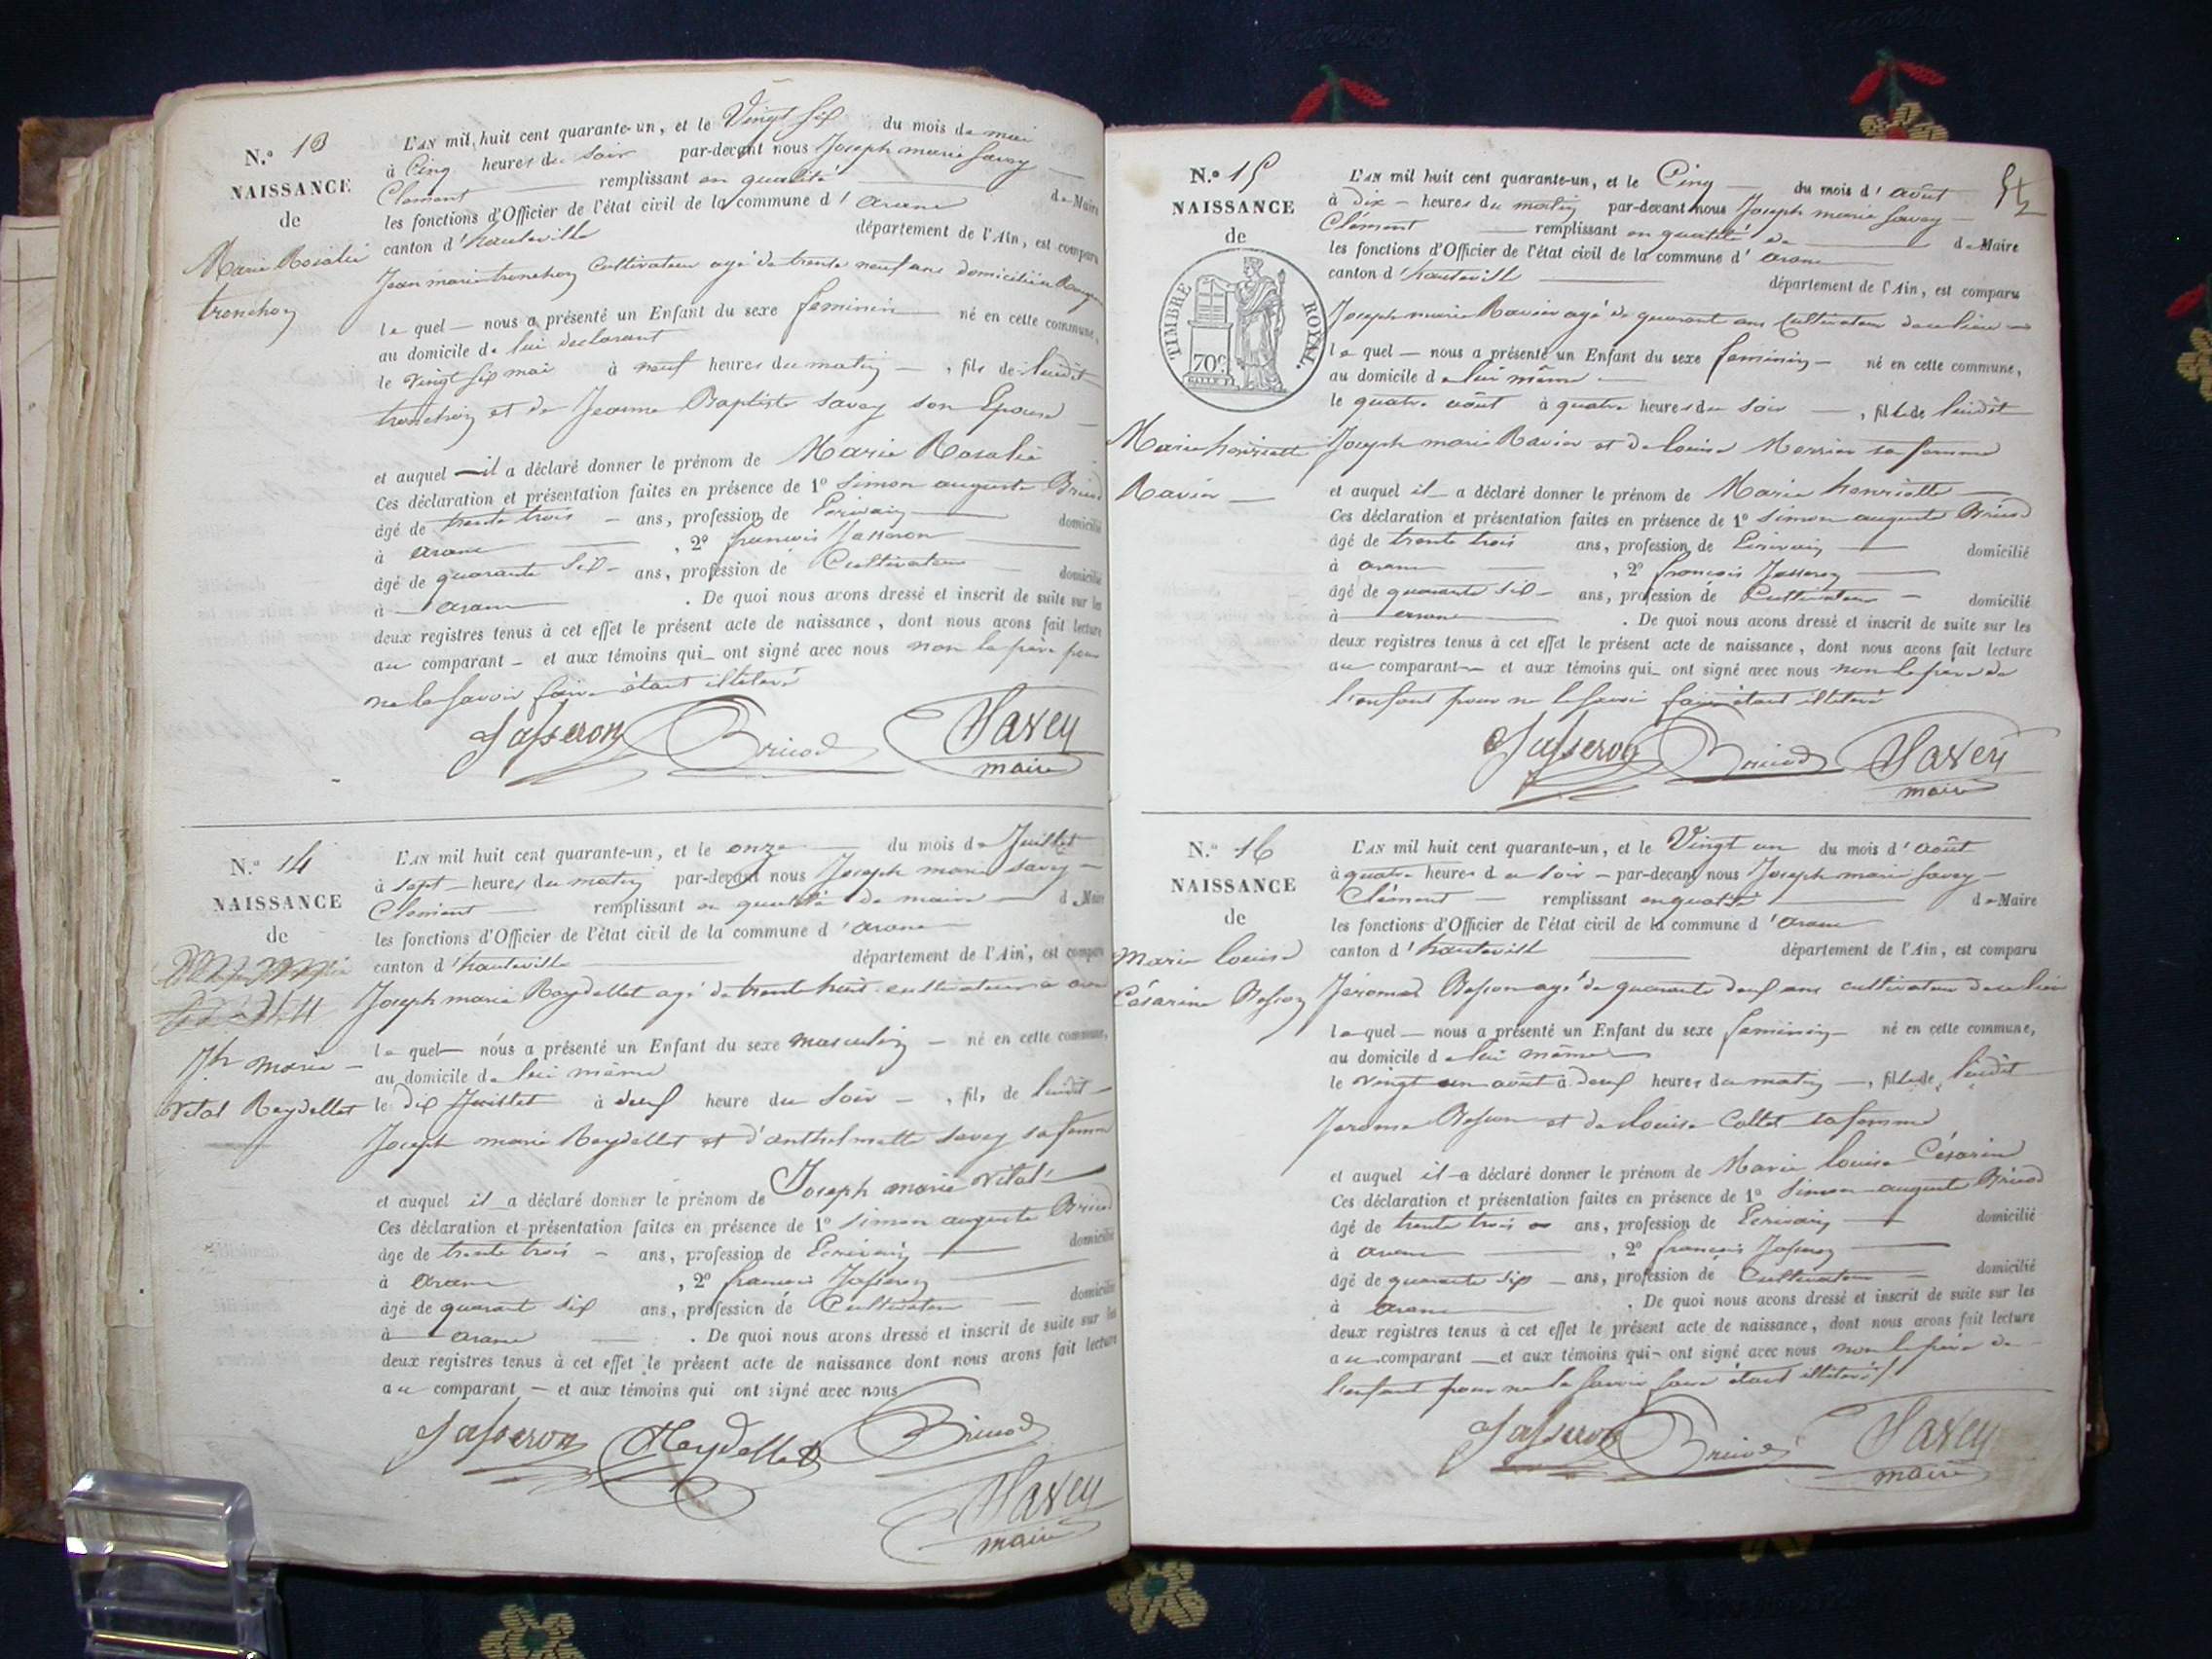 N.° 13
NAISSANCE
de
Marie Rosalie
tronchon
L'AN mil huit cent quarante-un, et le Vingt Six du mois de mai
à Cinq heures du Soir par-devant nous Joseph marie Savey
Clement remplissant en qualité de Maire
les fonctions d'Officier de l'état civil de la commune d' arane
canton d' hauteville département de l'Ain, est comparu
Jean marie tronchon Cultivateur agé de trente neuf ans domicilié a
le quel nous a présenté un Enfant du sexe feminin né en cette commune,
au domicile de lui declarant
le vingt Six mai à neuf heures du matin, fils de ludit
tronchon et de Jeanne Baptiste Savey son Epouse
et auquel il a déclaré donner le prénom de Marie Rosalie
Ces déclaration et présentation faites en présence de 1° Simon auguste Bricod
âgé de trente trois ans, profession de Ecrivain domicilié
à arane, 2° francois Jasseron
âgé de quarante Six ans, profession de Cultivateur domicilié
à arane. De quoi nous avons dressé et inscrit de suite sur les
deux registres tenus à cet effet le présent acte de naissance, dont nous avons fait lecture
au comparant et aux témoins qui ont signé avec nous non le père pour
ne le Savoir faire étant illeteré
Jasseron Bricod Savey
maire
N.° 14
NAISSANCE
de
Jh marie
Vital Reydellet
L'AN mil huit cent quarante-un, et le onze du mois de Juillet
à sept heures du matin par-devant nous Joseph marie Savey
Clement remplissant en qualité de maire de Maire
les fonctions d'Officier de l'état civil de la commune d' arane
canton d' hauteville département de l'Ain, est comparu
Joseph marie Reydellet agé de trente huit cultivateur a arane
le quel nous a présenté un Enfant du sexe masculin né en cette commune,
au domicile de lui même
le dix Juillet à deux heure du Soir, fils de ludit
Joseph marie Reydellet et d'anthelmette Savey sa femme
et auquel il a déclaré donner le prénom de Joseph marie Vital
Ces déclaration et présentation faites en présence de 1° Simon auguste Bricod
âgé de trente trois ans, profession de Ecrivain domicilié
à arane, 2° francois Jasseron
âgé de quarant Six ans, profession de Cultivateur domicilié
à arane. De quoi nous avons dressé et inscrit de suite sur les
deux registres tenus à cet effet le présent acte de naissance dont nous avons fait lecture
au comparant et aux témoins qui ont signé avec nous
Jasseron Reydellet Bricod
Savey
maire
N.° 15
NAISSANCE
de
TIMBRE ROYAL.
70c
Marie henriette
Ravier
L'AN mil huit cent quarante-un, et le Cinq du mois d' août
à Dix heures du matin par-devant nous Joseph marie Savey
Clément remplissant en qualité de de Maire
les fonctions d'Officier de l'état civil de la commune d' arane
canton d' hauteville département de l'Ain, est comparu
Joseph marie Ravier agé de quarant ans Cultivateur de ce lieu
le quel nous a présenté un Enfant du sexe feminin né en cette commune,
au domicile de lui même
le quatre août à quatre heures du Soir, fille de ludit
Joseph marie Ravier et de louise Mercier sa femme
et auquel il a déclaré donner le prénom de Marie henriette
Ces déclaration et présentation faites en présence de 1° Simon auguste Bricod
âgé de trente trois ans, profession de Ecrivain domicilié
à arane, 2° francois Jasseron
âgé de quarante Six ans, profession de Cultivateur domicilié
à arane. De quoi nous avons dressé et inscrit de suite sur les
deux registres tenus à cet effet le présent acte de naissance, dont nous avons fait lecture
au comparant et aux témoins qui ont signé avec nous non le père de
l'enfant pour ne le Savoir faire étant illeteré
Jasseron Bricod Savey
maire
N.° 16
NAISSANCE
de
Marie louise
Césarine Besson
L'AN mil huit cent quarante-un, et le Vingt un du mois d' août
à quatre heures du Soir par-devant nous Joseph marie Savey
Clément remplissant en qualité de Maire
les fonctions d'Officier de l'état civil de la commune d' arane
canton d' hauteville département de l'Ain, est comparu
Jerome Besson agé de quarante deux ans cultivateur de ce lieu
le quel nous a présenté un Enfant du sexe feminin né en cette commune,
au domicile de lui même
le vingt un août à deux heures du matin, fille de ludit
Jerome Besson et de louise Collet sa femme
et auquel il a déclaré donner le prénom de Marie louise Césarine
Ces déclaration et présentation faites en présence de 1° Simon auguste Bricod
âgé de trente trois ans, profession de Ecrivain domicilié
à arane, 2° françois Jasseron
âgé de quarante six ans, profession de Cultivateur domicilié
à arane. De quoi nous avons dressé et inscrit de suite sur les
deux registres tenus à cet effet le présent acte de naissance, dont nous avons fait lecture
au comparant et aux témoins qui ont signé avec nous non le père de
l'enfant pour ne le Savoir faire étant illétéré
Jasseron Bricod Savey
maire